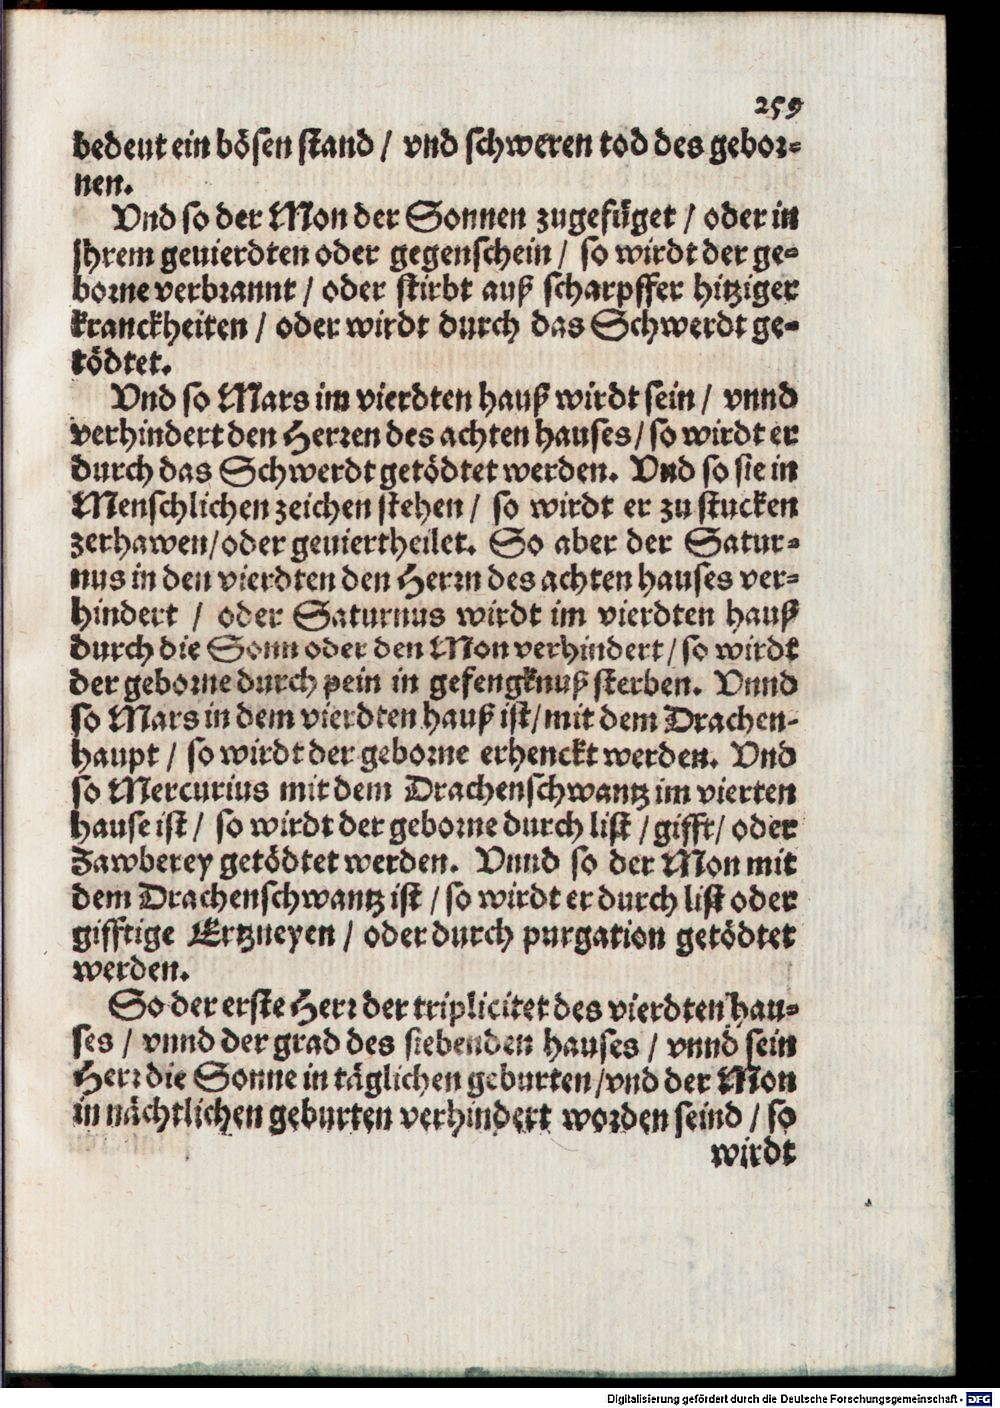 259
bedeut ein bösen stand / vnd schweren tod des gebor-
nen.
Vnd so der Mon der Sonnen zugefüget / oder in
jhrem geuierdten oder gegenschein / so wirdt der ge-
borne verbrannt / oder stirbt auß scharpffer hitziger
kranckheiten / oder wirdt durch das Schwerdt ge-
tödtet.
Vnd so Mars im vierdten hauß wirdt sein / vnnd
verhindert den Herren des achten hauses / so wirdt er
durch das Schwerdt getödtet werden. Vnd so sie in
Menschlichen zeichen stehen / so wirdt er zu stucken
zerhawen / oder geuiertheilet. So aber der Satur-
nus in den vierdten den Herrn des achten hauses ver-
hindert / oder Saturnus wirdt im vierdten hauß
durch die Sonn oder den Mon verhindert / so wirdt
der geborne durch pein in gefengknuß sterben. Vnnd
so Mars in dem vierdten hauß ist / mit dem Drachen-
haupt / so wirdt der geborne erhenckt werden. Vnd
so Mercurius mit dem Drachenschwantz im vierten
hause ist / so wirdt der geborne durch list / gifft / oder
Zawberey getödtet werden. Vnnd so der Mon mit
dem Drachenschwantz ist / so wirdt er durch list oder
gifftige Ertzneyen / oder durch purgation getödtet
werden.
So der erste Herr der triplicitet des vierdten hau-
ses / vnnd der grad des siebenden hauses / vnnd sein
Herr die Sonne in täglichen geburten / vnd der Mon
in nächtlichen geburten verhindert worden seind / so
wirdt
Digitalisierung gefördert durch die Deutsche Forschungsgemeinschaft - DFG